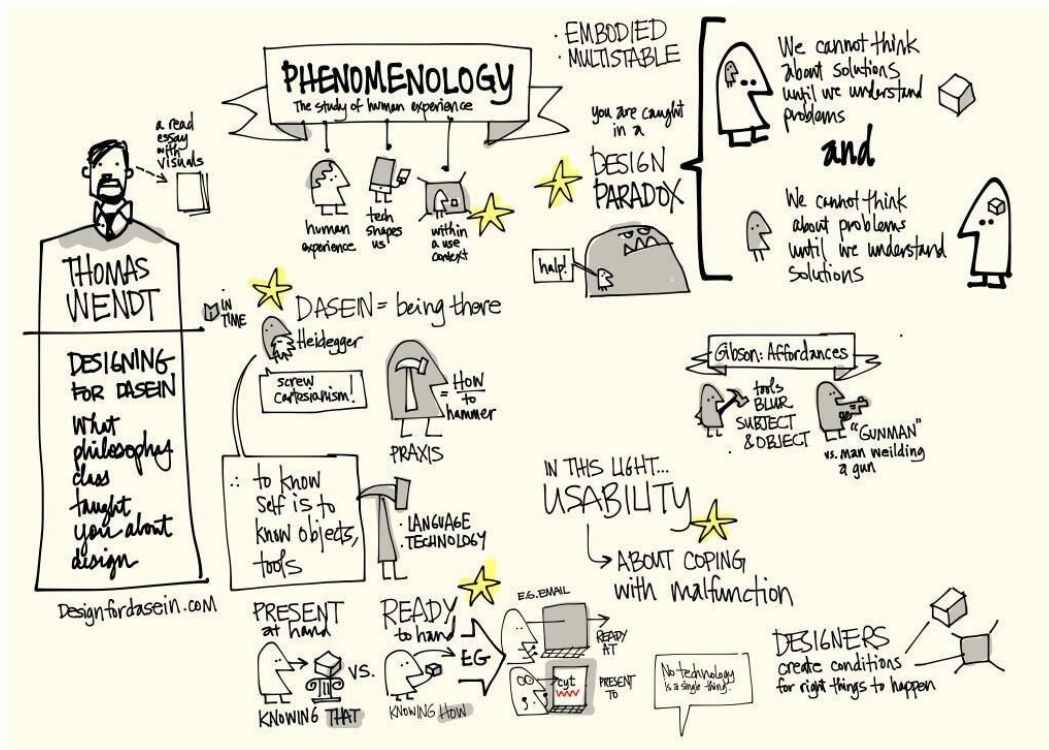 a read
essay
with
visuals
THOMAS
WENDT
DESIGNING
FOR DASEIN
What
philosophy
class
taught
you about
design
Designfordasein.com
PHENOMENOLOGY
The study of human experience
human
experience
tech
shapes
us
within
a use
context
· EMBODIED
· MULTISTABLE
you are caught
in a
DESIGN
PARADOX
halp!
We cannot think
about solutions
until we understand
problems
and
We cannot think
about problems
until we understand
solutions
IN
TIME
DASEIN = being there
Heidegger
screw
cartesianism!
= HOW
to
hammer
PRAXIS
∴ to know
self is to
know objects,
tools
· LANGUAGE
TECHNOLOGY
Gibson: Affordances
tools
BLUR
SUBJECT
& OBJECT
"GUNMAN"
vs. man weilding
a gun
IN THIS LIGHT...
USABILITY
ABOUT COPING
with malfunction
PRESENT
at hand
VS.
KNOWING THAT
READY
to hand
KNOWING HOW
EG
E.G. EMAIL
READY
AT
cyt
PRESENT
TO
No technology
is a single thing.
DESIGNERS
create conditions
for right things to happen